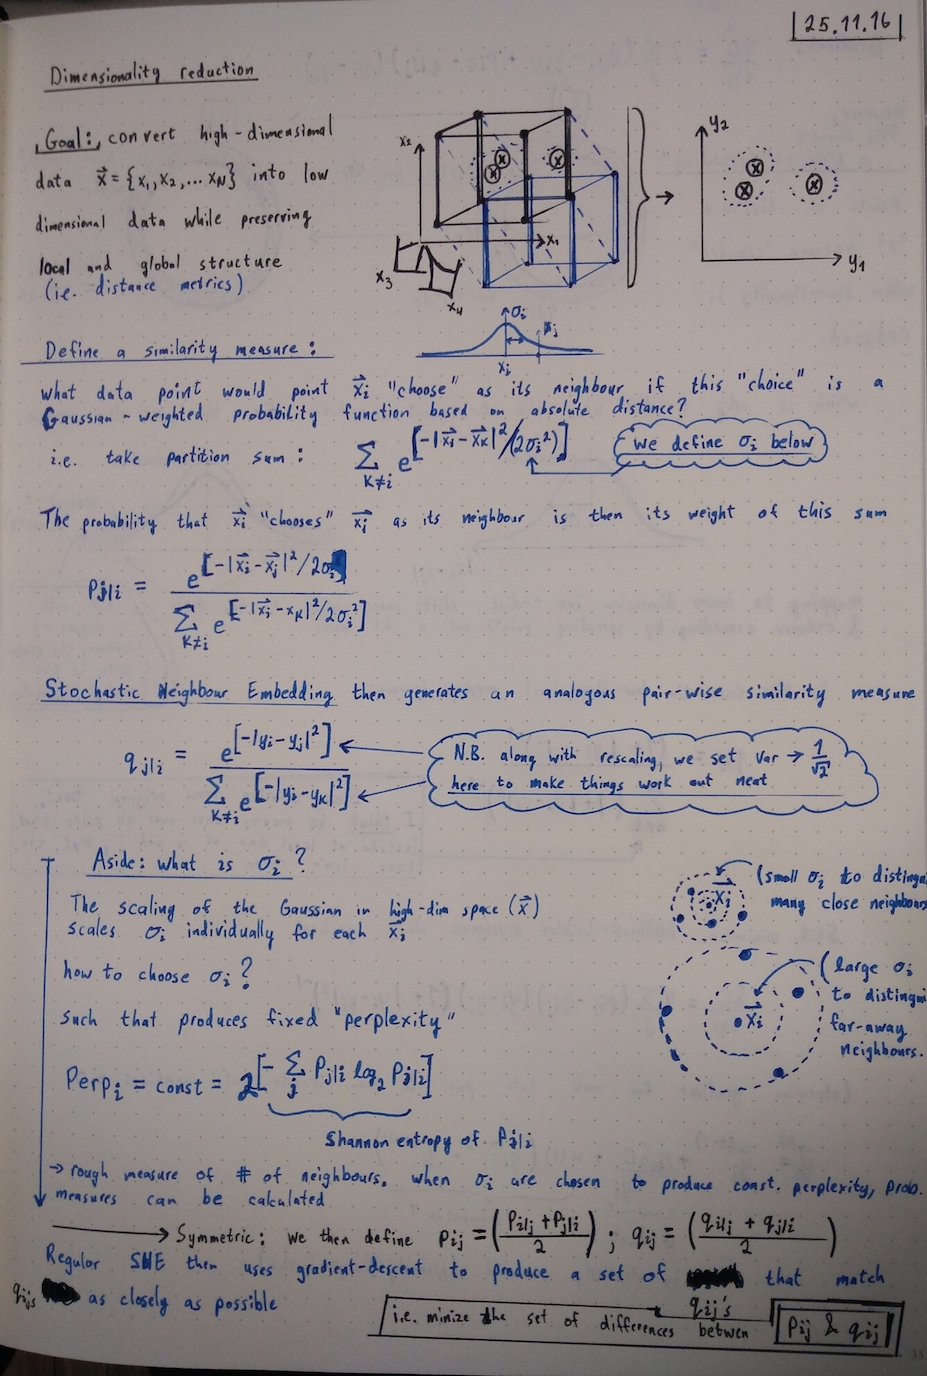 25.11.16
Dimensionality reduction
Goal: convert high-dimensional
data x⃗ = {x₁, x₂, ... x_N} into low
dimensional data while preserving
local and global structure
(i.e. distance metrics)
x₂
x₁
x₃
x₄
y₂
y₁
σᵢ
xⱼ
xᵢ
Define a similarity measure:
what data point would point x⃗ᵢ "choose" as its neighbour if this "choice" is a
Gaussian-weighted probability function based on absolute distance?
i.e. take partition sum: Σ_{K≠i} e^[-|x⃗ᵢ - x⃗_K|²/(2σᵢ²)]
we define σᵢ below
The probability that x⃗ᵢ "chooses" x⃗ⱼ as its neighbour is then its weight of this sum
P_{j|i} = e^[-|x⃗ᵢ - x⃗ⱼ|²/2σᵢ²] / Σ_{K≠i} e^[-|x⃗ᵢ - x_K|²/2σᵢ²]
Stochastic Neighbour Embedding then generates an analogous pair-wise similarity measure
q_{j|i} = e^[-|yᵢ-yⱼ|²] / Σ_{K≠i} e^[-|yᵢ-y_K|²]
N.B. along with rescaling, we set Var → 1/√2
here to make things work out neat
Aside: what is σᵢ?
The scaling of the Gaussian in high-dim space (x⃗)
scales σᵢ individually for each x⃗ᵢ
how to choose σᵢ?
such that produces fixed "perplexity"
Perpᵢ = const = 2^[-Σ_j P_{j|i} log₂ P_{j|i}]
Shannon entropy of P_{j|i}
x⃗ᵢ
(small σᵢ to distingui
many close neighbours
x⃗ᵢ
(large σᵢ
to distingui
far-away
neighbours.
→ rough measure of # of neighbours. when σᵢ are chosen to produce const. perplexity, prob.
measures can be calculated
Symmetric: We then define P_{ij} = (P_{i|j} + P_{j|i} / 2) ; q_{ij} = (q_{i|j} + q_{j|i} / 2)
Regular SNE then uses gradient-descent to produce a set of that match
q_{ij}s as closely as possible
q_{ij}'s
i.e. minize the set of differences betwen P_{ij} & q_{ij}
33